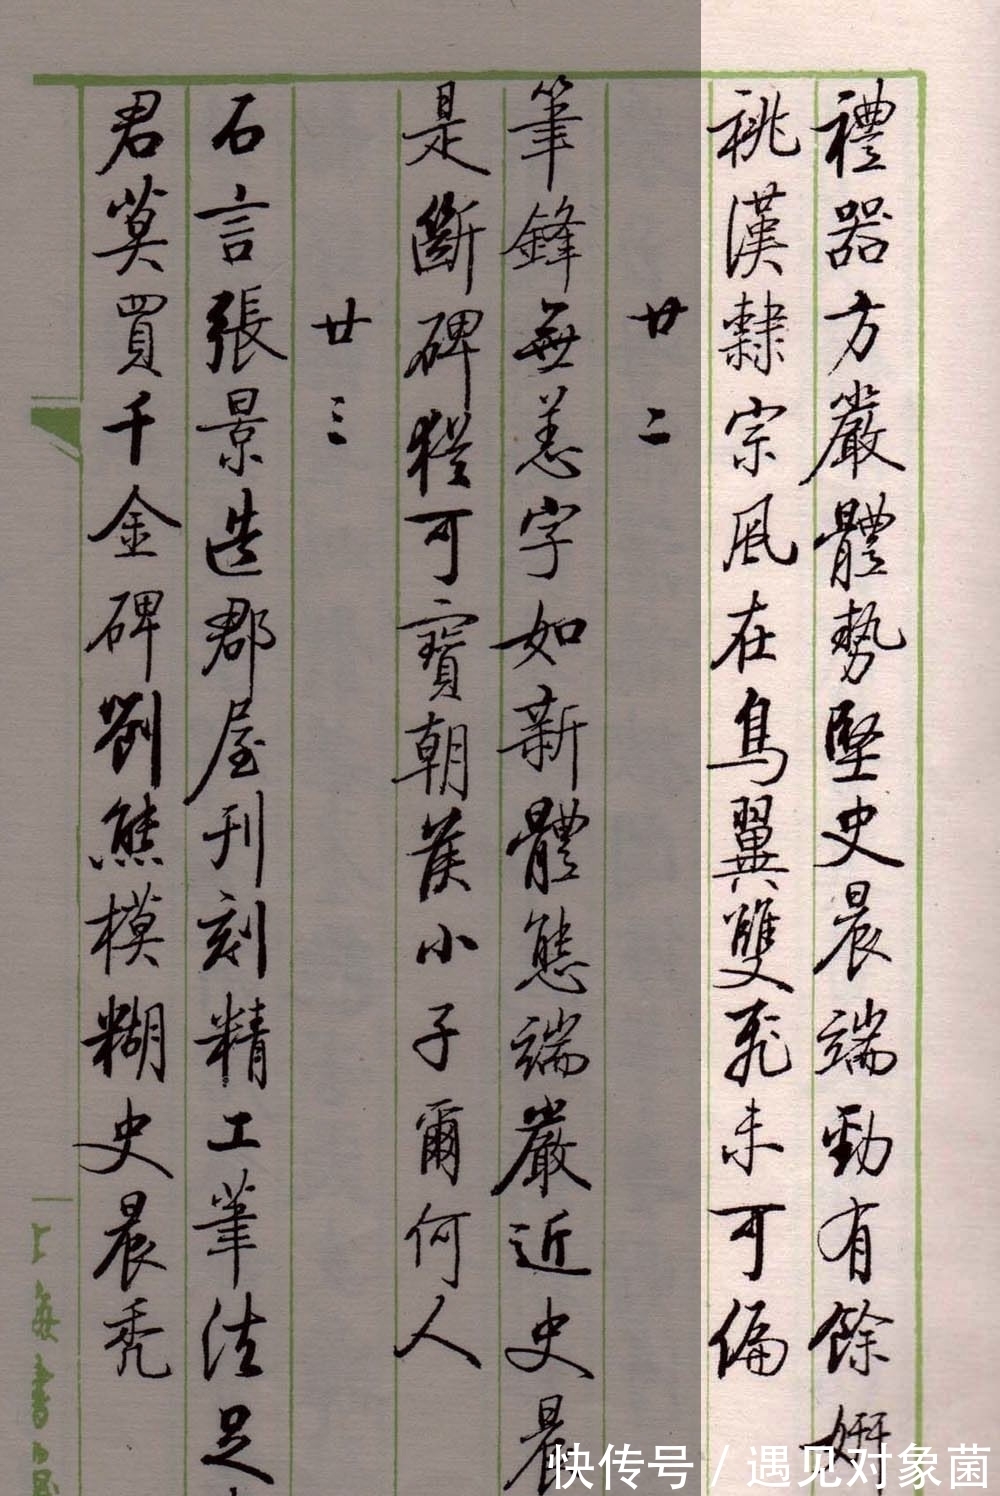 禮器方嚴體勢堅史晨端勁有餘妍
祧漢隸宗風在鳥翼雙飛未可偏
廿二
筆鋒無恙字如新體態端嚴近史晨
是斷碑猶可寶朝侯小子爾何人
廿三
石言張景造郡屋刊刻精工筆法足
君莫買千金碑劉熊模糊史晨禿
上海書
快传号 / 遇见对象菌